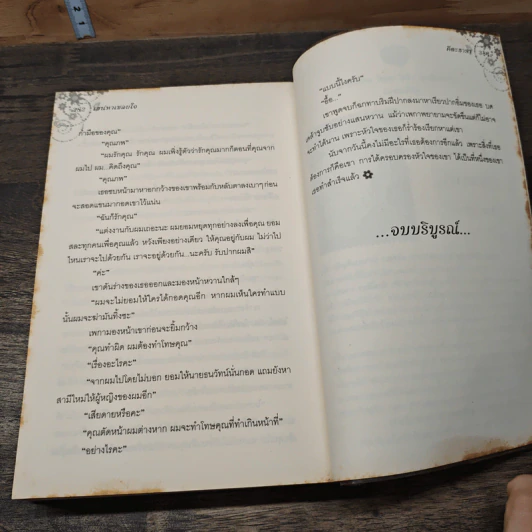 ก็ามือของคุณ"
"คุณภพ"
"ผมรักคุณ รักคุณ ผมเพิ่งรู้ตัวว่ารักคุณมากก็ตอนที่คุณจาก
ผมไป ผม...คิดถึงคุณ"
"คุณภพ"
เธอซบหน้ามาหาอกกว้างของเขาพร้อมกับหลับตาลงเบาๆ ก่อน
จะสอดแขนมากอดเขาไว้แน่น
"ฉันก็รักคุณ"
"แต่งงานกับผมเถอะนะ ผมยอมหยุดทุกอย่างลงเพื่อคุณ ยอม
สละทุกคนเพื่อคุณแล้ว หวังเพียงอย่างเดียว ให้คุณอยู่กับผม ไม่ว่าไป
ไหนเราจะไปด้วยกัน เราจะอยู่ด้วยกัน...นะครับ รับปากผมสิ"
"ค่ะ"
เขาดันร่างของเธอออกและมองหน้าหวานใกล้ๆ
"ผมจะไม่ยอมให้ใครได้กอดคุณอีก หากผมเห็นใครทำแบบ
นั้นผมจะฆ่ามันทิ้งซะ"
เพกามองหน้าเขาก่อนจะยิ้มกว้าง
"คุณทำผิด ผมต้องทำโทษคุณ"
"เรื่องอะไรคะ"
"จากผมไปโดยไม่บอก ยอมให้นายธนวัทน์นั่นกอด แถมยังหา
สามีใหม่ให้ผู้หญิงของผมอีก"
"เสียดายหรือคะ"
"คุณตัดหน้าผมต่างหาก ผมจะทำโทษคุณที่ทำเกินหน้าที่"
"อย่างไรคะ"
"แบบนี้ไงครับ"
"อื้อ..."
เขาฉุดจบก็ฉกทาบริมฝีปากลงมาหาเรียวปากอิ่มของเธอ บด
เคล้าจูบซับอย่างแสนหวาน แม้ว่าเพกาพยายามจะขัดขืนแต่ก็ไม่อาจ
จะทำได้นาน เพราะหัวใจของเธอก็ร่ำร้องเรียกหาแต่เขา
นับจากวันนี้คงไม่มีอะไรที่เธอต้องการอีกแล้ว เพราะสิ่งที่เธอ
ต้องการก็คือเขา การได้ครอบครองหัวใจของเขา ได้เป็นที่หนึ่งของเขา
เธอทำสำเร็จแล้ว
...จบบริบูรณ์...